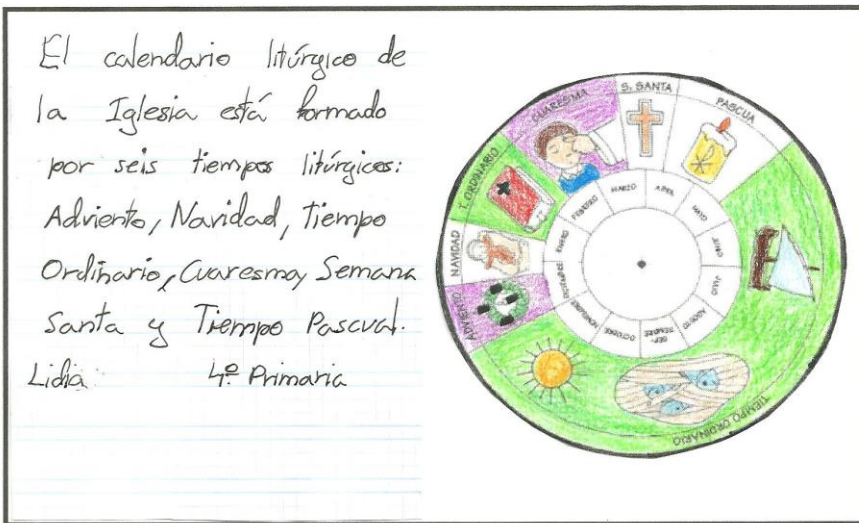 El calendario litúrgico de
la Iglesia está formado
por seis tiempos litúrgicos:
Adviento, Navidad, Tiempo
Ordinario, Cuaresma, Semana
Santa y Tiempo Pascual.
Lidia 4º Primaria
ADVIENTO
NAVIDAD
T. ORDINARIO
CUARESMA
S. SANTA
PASCUA
TIEMPO ORDINARIO
ENERO
FEBRERO
MARZO
ABRIL
MAYO
JUNIO
JULIO
AGOSTO
SEP-
TIEMBRE
OCTUBRE
NOVIEMBRE
DICIEMBRE